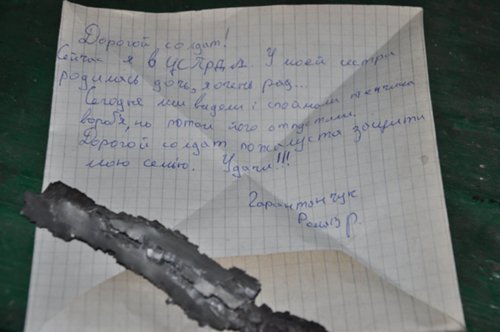 Дорогой солдат!
Сейчас я в ЦСПРДА. У моей сестри
родилась дочь, я очень рад...
Сегодня ми видели і споймали птенчика
воробя, но потом його отпустили.
Дорогой солдат пожалуста защити
мою семю. Удачи!!!
Гарантянчук
Рома Р.